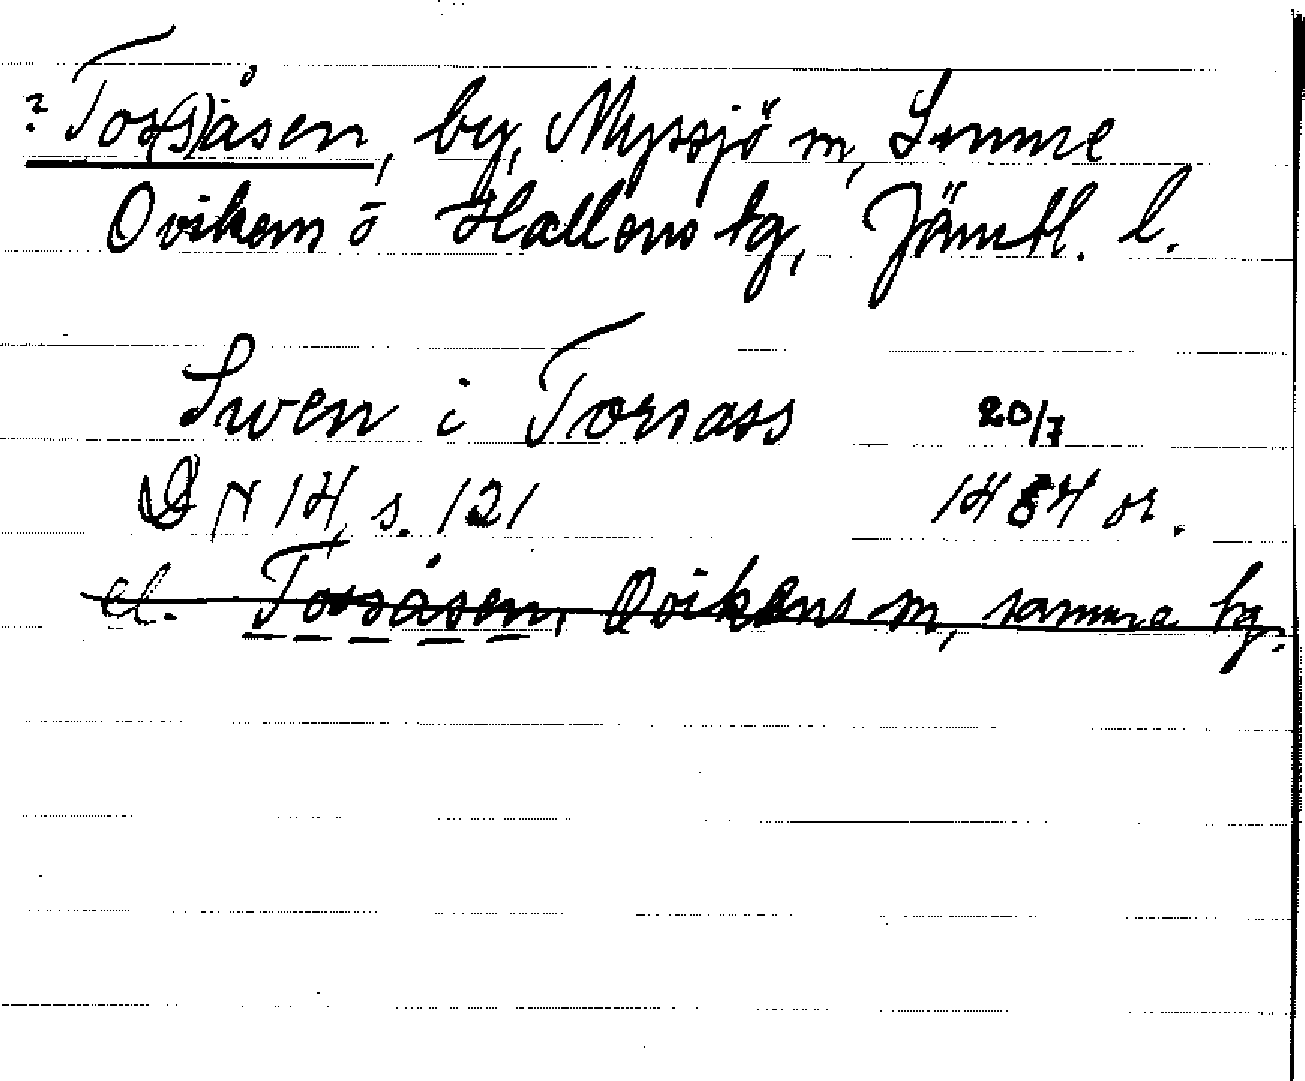 ? Tor(s)åsen, by, Myssjö sn, Sunne
Ovikens o Hallens tg, Jämtl. l.
Swen i Torsass 20/7
DN 14, s. 121 1484 or.
el. Torsåsen, Ovikens sn, samma tg.